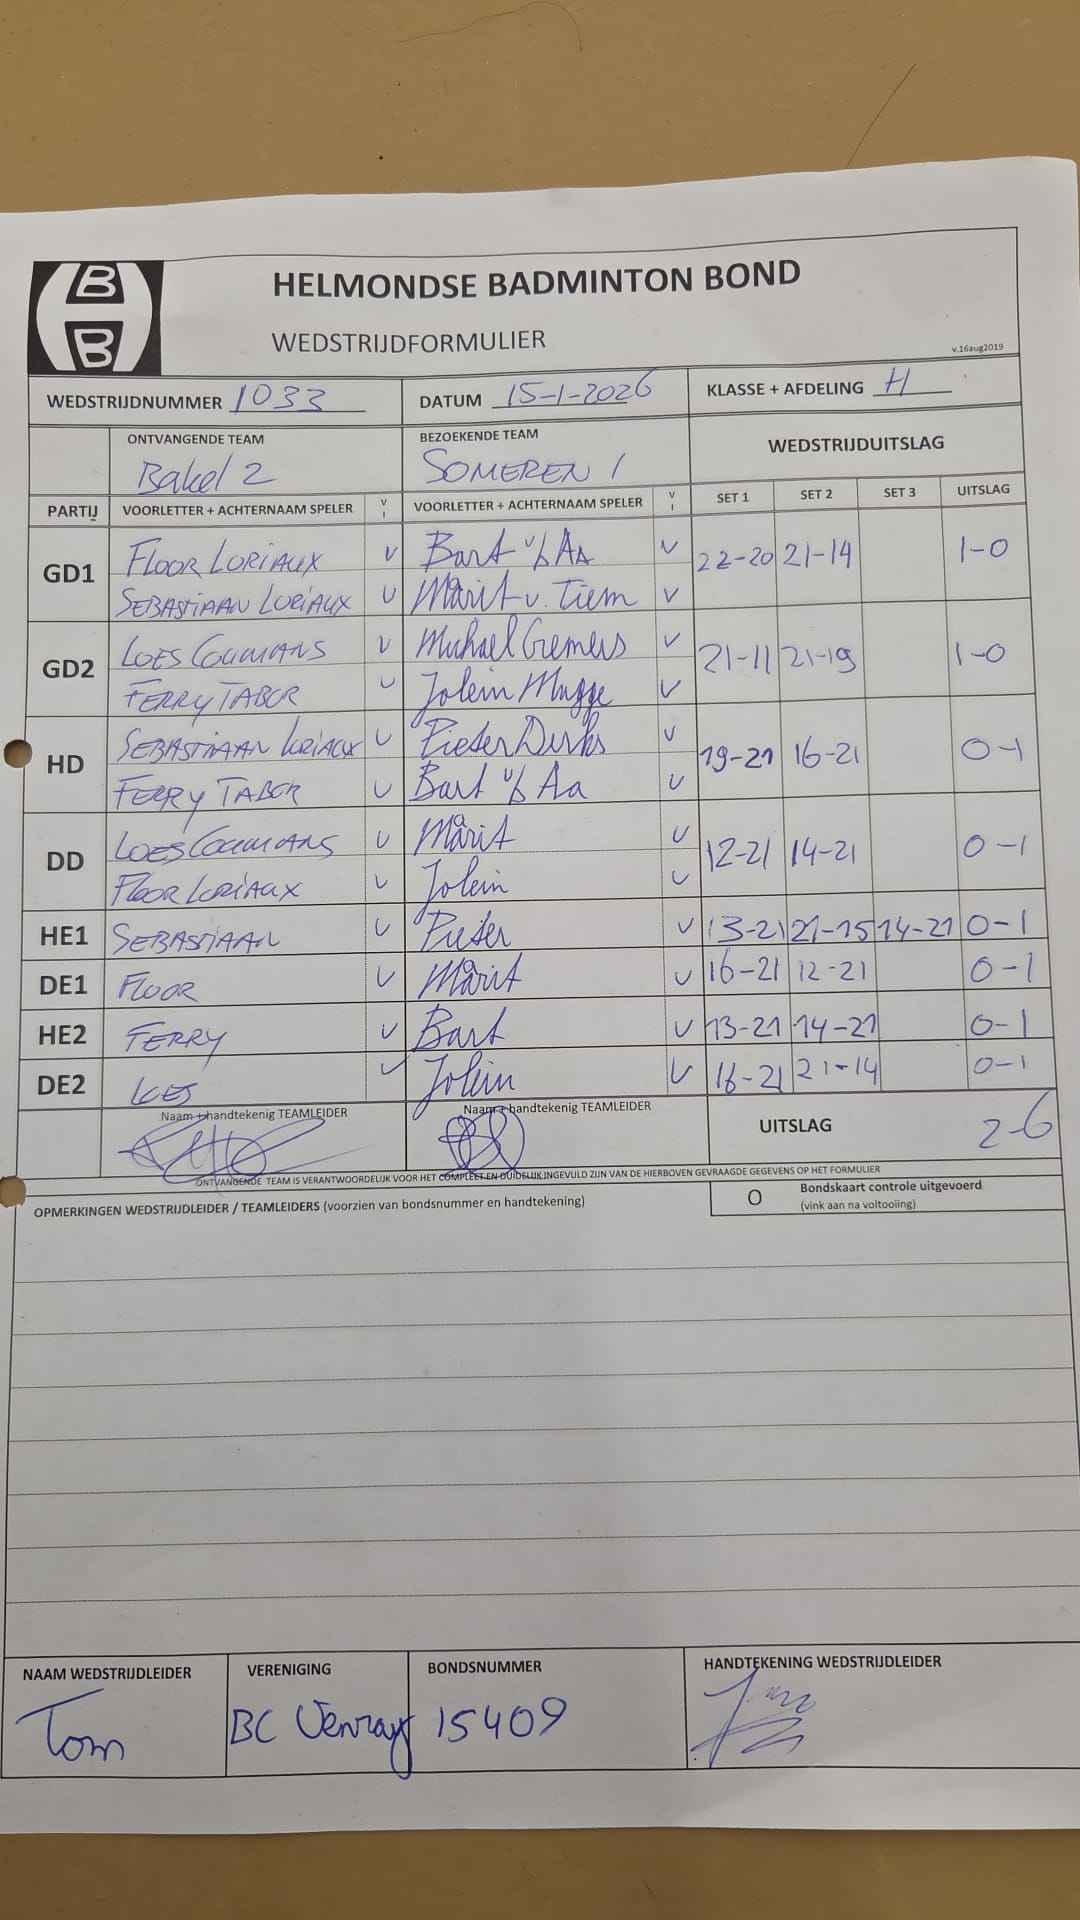 B
B
HELMONDSE BADMINTON BOND
WEDSTRIJDFORMULIER
v.16aug2019
WEDSTRIJDNUMMER 1033 DATUM 15-1-2026 KLASSE + AFDELING H
ONTVANGENDE TEAM BEZOEKENDE TEAM WEDSTRIJDUITSLAG
Bakel 2 SOMEREN 1
PARTIJ VOORLETTER + ACHTERNAAM SPELER V I VOORLETTER + ACHTERNAAM SPELER V I SET 1 SET 2 SET 3 UITSLAG
GD1 FLOOR LORIAUX V Bart v/d AA V 22-20 21-14 1-0
SEBASTIAAN LORIAUX V Marit v. Tiem V
GD2 LOES COUMANS V Michael Cremers V 21-11 21-19 1-0
FERRY TABOR V Jolein Mugge V
HD SEBASTIAAN LORIAUX V Pieter Dirks V 19-21 16-21 0-1
FERRY TABOR V Bart v/d Aa V
DD LOES COUMANS V Marit V 12-21 14-21 0-1
FLOOR LORIAUX V Jolein V
HE1 SEBASTIAAN V Pieter V 13-21 21-15 14-21 0-1
DE1 FLOOR V Marit V 16-21 12-21 0-1
HE2 FERRY V Bart V 13-21 14-21 0-1
DE2 LOES V Jolein V 16-21 21-14 0-1
Naam + handtekenig TEAMLEIDER Naam + handtekenig TEAMLEIDER UITSLAG 2-6
ONTVANGENDE TEAM IS VERANTWOORDELIJK VOOR HET COMPLEET EN DUIDELIJK INGEVULD ZIJN VAN DE HIERBOVEN GEVRAAGDE GEGEVENS OP HET FORMULIER
OPMERKINGEN WEDSTRIJDLEIDER / TEAMLEIDERS (voorzien van bondsnummer en handtekening) O Bondskaart controle uitgevoerd
(vink aan na voltooiing)
NAAM WEDSTRIJDLEIDER VERENIGING BONDSNUMMER HANDTEKENING WEDSTRIJDLEIDER
Tom BC Venray 15409